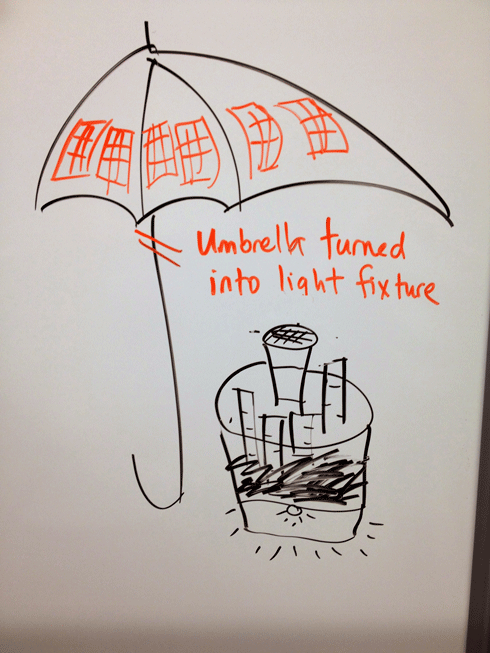 Umbrella turned
into light fixture